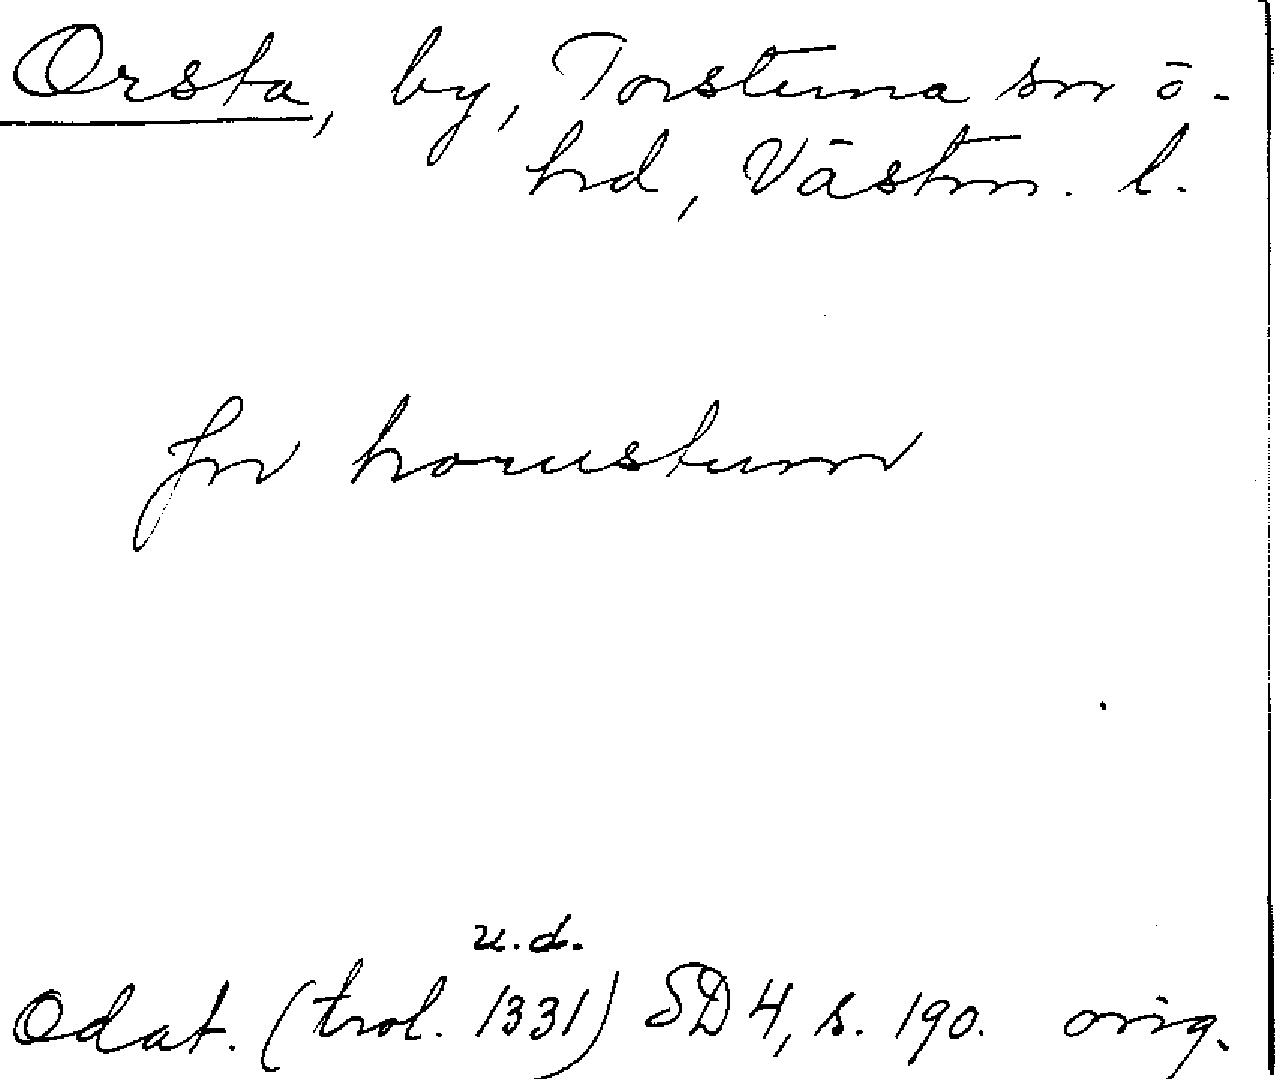 Orsta, by, Torstuna sn ö-
hd, Västm. l.
jn horustum
u.d.
Odat. (trol. 1331) SD 4, s. 190. orig.